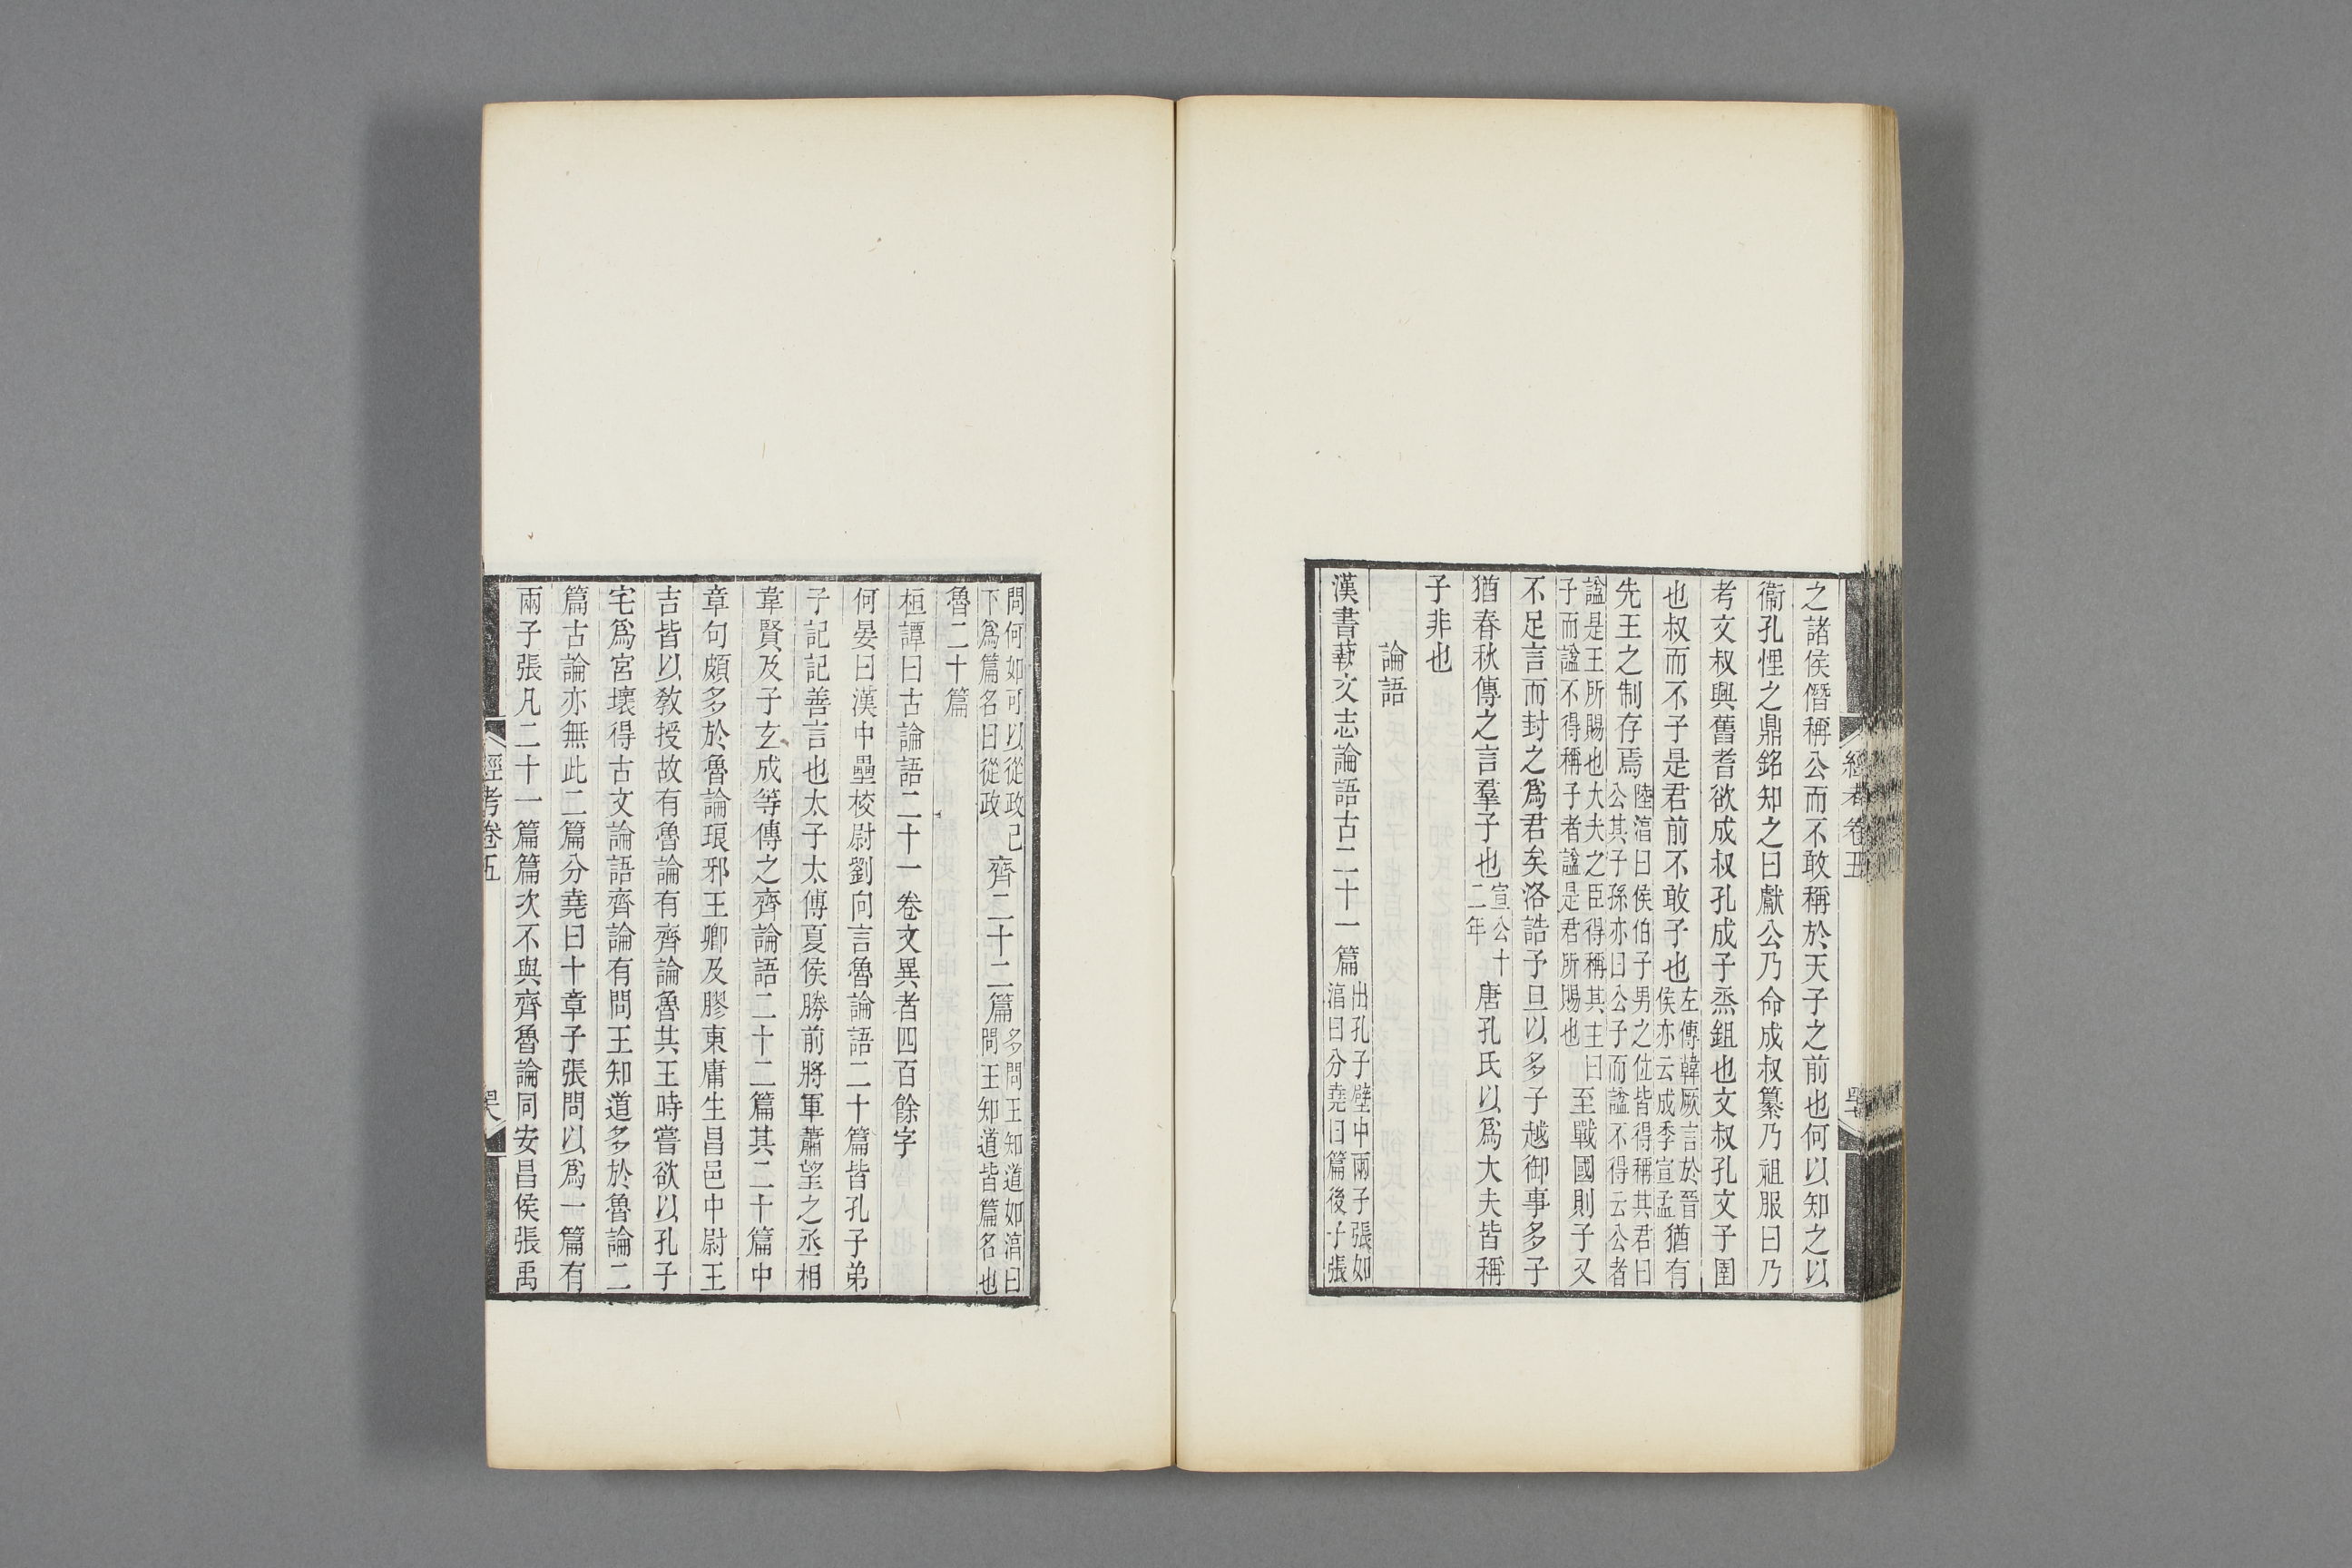 之諸侯僭稱公而不敢稱於天子之前也何以知之以
衞孔悝之鼎銘知之曰獻公乃命成叔纂乃祖服曰乃
考文叔興舊耆欲成叔孔成子烝鉏也文叔孔文子圉
也叔而不子是君前不敢子也左傳韓厥言於晉侯亦云成季宣孟猶有
先王之制存焉陸淳曰侯伯子男之位皆得稱其君曰公其子孫亦曰公子而諡不得云公者
諡是王所賜也大夫之臣得稱其主曰子而諡不得稱子者諡是君所賜也至戰國則子又
不足言而封之爲君矣洛誥予旦以多子越御事多子
猶春秋傳之言羣子也宣公十二年唐孔氏以爲大夫皆稱
子非也
論語
漢書藝文志論語古二十一篇出孔子壁中兩子張如淳曰分堯曰篇後子張
問何如可以從政已下爲篇名曰從政齊二十二篇多問王知道如淳曰問王知道皆篇名也
魯二十篇
桓譚曰古論語二十一卷文異者四百餘字
何晏曰漢中壘校尉劉向言魯論語二十篇皆孔子弟
子記記善言也太子太傅夏侯勝前將軍蕭望之丞相
韋賢及子玄成等傳之齊論語二十二篇其二十篇中
章句頗多於魯論琅邪王卿及膠東庸生昌邑中尉王
吉皆以敎授故有魯論有齊論魯共王時嘗欲以孔子
宅爲宮壞得古文論語齊論有問王知道多於魯論二
篇古論亦無此二篇分堯曰十章子張問以爲一篇有
兩子張凡二十一篇篇次不與齊魯論同安昌侯張禹
經考卷五